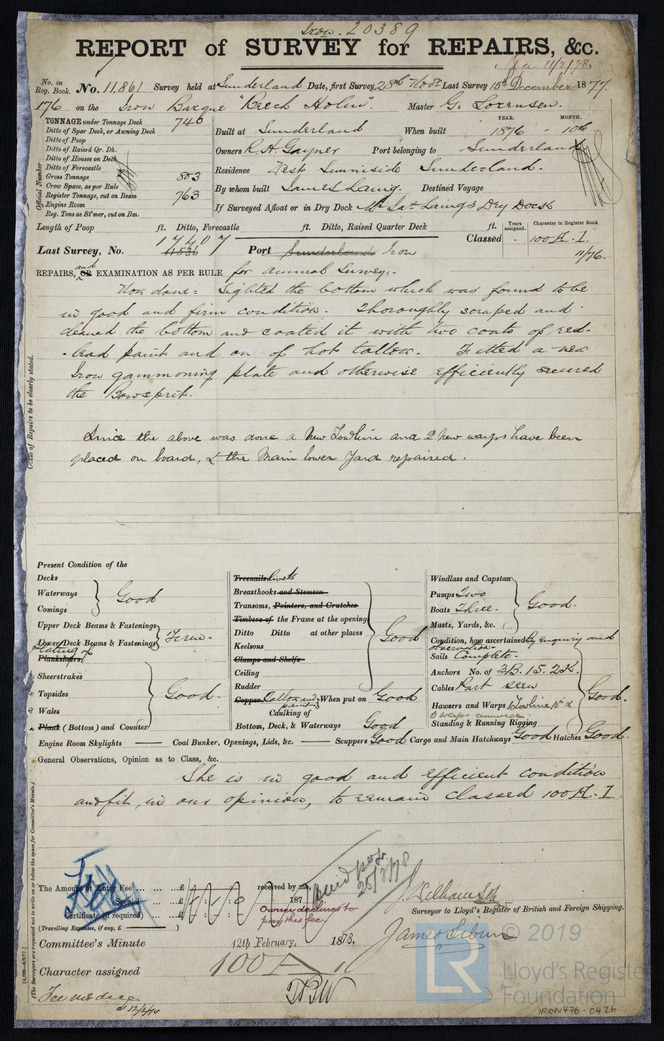 Iron. 20389
REPORT of SURVEY for REPAIRS, &c.
No. in Reg. Book. No. 11,861 Survey held at Sunderland Date, first Survey 28th Novr Last Survey 15th December 1877
176 on the Iron Barque "Beech Holm" Master G. Lorensen.
TONNAGE under Tonnage Deck 746
Ditto of Spar Deck, or Awning Deck
Ditto of Poop
Ditto of Raised Qr. Dk.
Ditto of Houses on Deck
Ditto of Forecastle
Gross Tonnage 803
Crew Space, as per Rule
Register Tonnage, cut on Beam 763
Engine Room
Reg. Tons as St'mer, cut on Bm.
Official Number
YEAR. MONTH.
Built at Sunderland When built 1876 10th
Owners R. H. Gayner Port belonging to Sunderland
Residence West Sunniside Sunderland.
By whom built James Laing. Destined Voyage
If Surveyed Afloat or in Dry Dock Mr Jas Laing's Dry Dock
Length of Poop ft. Ditto, Forecastle ft. Ditto, Raised Quarter Deck ft.
Years assigned. Character in Register Book.
Classed - 100 A. 1.
11/76.
17407
Last Survey, No. 11836 Port Sunderland Iron
REPAIRS, OR and EXAMINATION AS PER RULE for Annual Survey.
Now done: Sighted the bottom which was found to be
in good and firm condition. Thoroughly scraped and
cleaned the bottom and coated it with two coats of red-
-lead paint and one of hot tallow. Fitted a new
Iron gammoning plate and otherwise efficiently secured
the Bowsprit.
Since the above was done a New Towline and 2 New warps have been
placed on board, & the Main lower Yard repaired.
State of Repairs to be clearly stated.
Present Condition of the
Decks
Waterways
Comings
Good
Upper Deck Beams & Fastenings
Lower Deck Beams & Fastenings
Firm.
Plating of
Planksheers
Sheerstrakes
Topsides
Wales
Plank (Bottom) and Counter
Good.
Treenails Rivets
Breasthooks and Stemson
Transoms, Pointers, and Crutches
Timbers of the Frame at the opening
Ditto Ditto at other places
Keelsons
Clamps and Shelfs
Ceiling
Rudder
Good
Copper Tallow and paint When put on Good
Caulking of
Bottom, Deck, & Waterways Good
Windlass and Capstan
Pumps Two
Boats Three.
Masts, Yards, &c.
Good.
Condition, how ascertained By enquiry and
observation.
Sails Complete.
Anchors No. of 3B. 1S. 2K.
Cables Part seen
Hawsers and Warps Towline
Standing & Running Rigging
Good.
Engine Room Skylights — Coal Bunker, Openings, Lids, &c. — Scuppers Good Cargo and Main Hatchways Good Hatches Good.
General Observations, Opinion as to Class, &c.
She is in good and efficient condition
and fit, in our opinion, to remain classed 100 A. 1.
The Amount of Entry Fee ... £ received by me,
Special ... £ 187
Certificate (if required) £
(Travelling Expenses, if any, £ )
Owner declines to
pay this fee
Surveyor to Lloyd's Register of British and Foreign Shipping.
Committee's Minute 12th February, 1878.
Character assigned 100 A 1
Fee not due
© 2019
LR
Lloyd's Register
Foundation
IRON476-0426